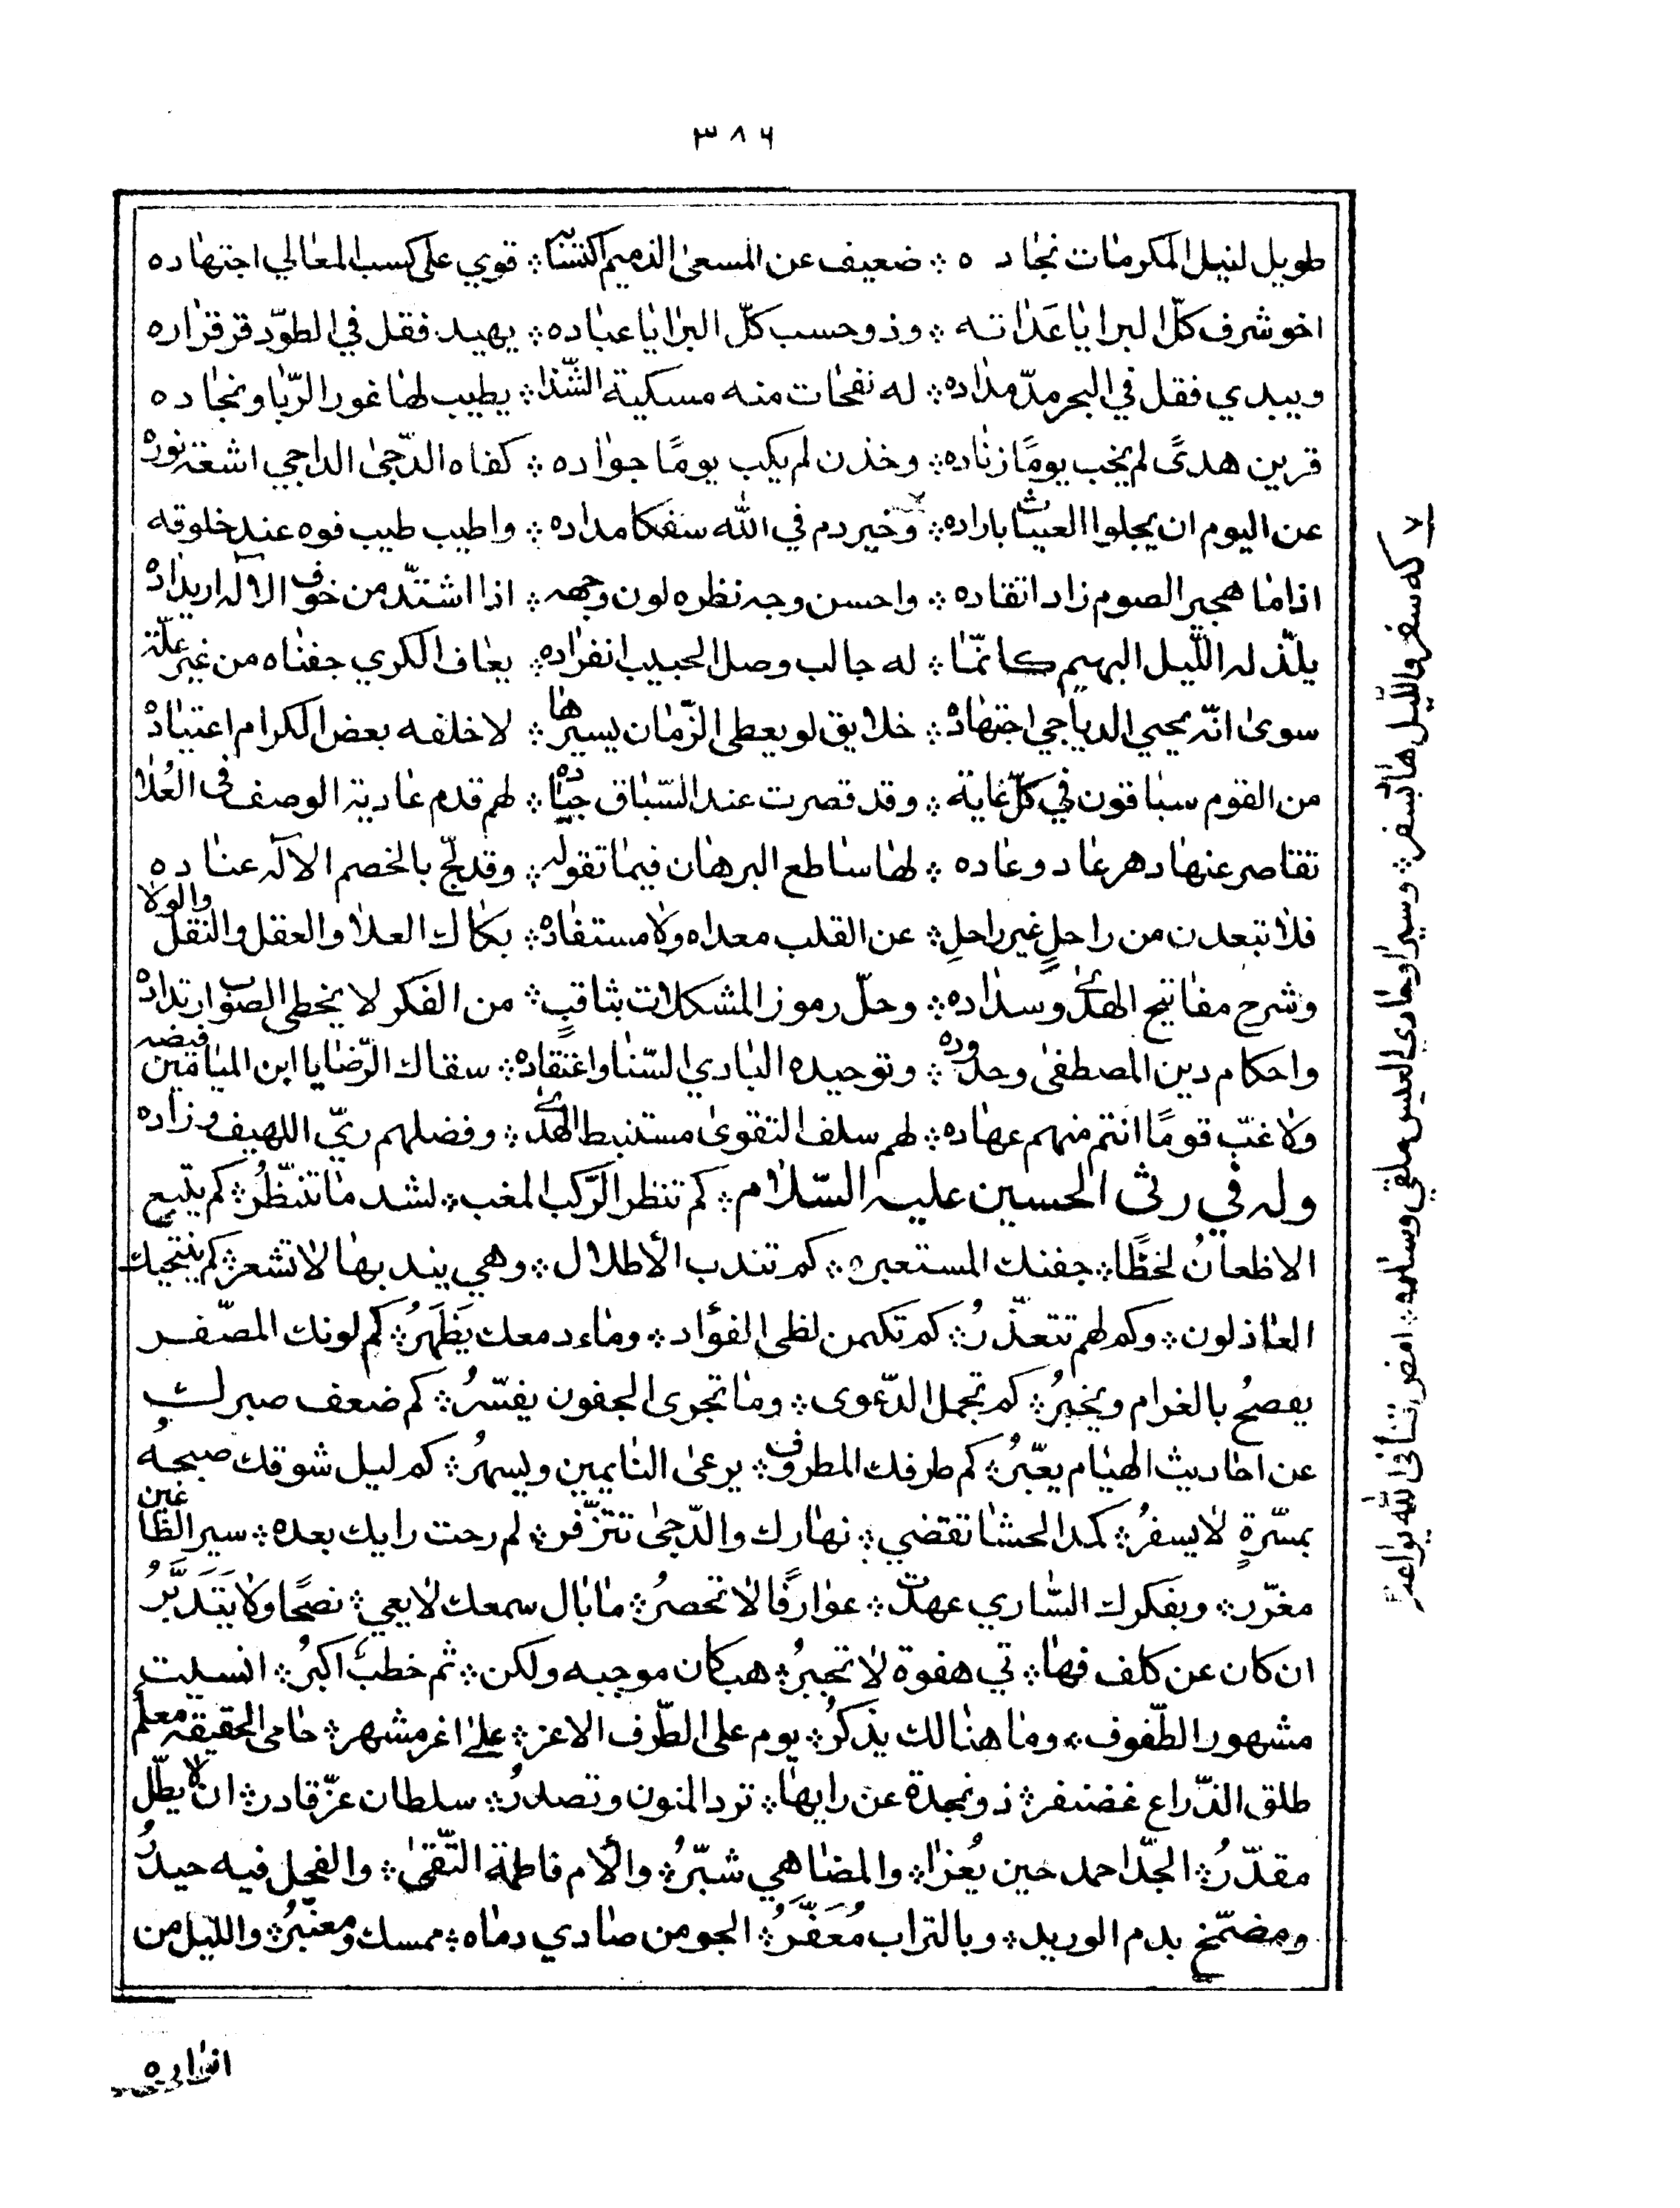 ٣٨٦
طويل لنيل المكرمات نجاده ؞ ضعيف عن المسعى الذميم اكتسابه ؞ قوي على كسب المعالي اجتهاده
اخو شرف كلّ البرايا عداته ؞ وذو حسب كلّ البرايا عباده ؞ يهيد فقل في الطوّد قر قراره
ويبدي فقل في البحر مدّ مداده ؞ له نفحات منه مسكية الشّذا ؞ يطيب لها غور الرّبا ونجاده
قرين هدىً لم يخب يومًا زناده ؞ وخذن لم يكب يومًا جواده ؞ كفاه الدّجى الداجي اشعّة نوره
عن اليوم ان يجلوا باراده ؞ وخير دم في الله سفكا مداده ؞ واطيب طيب فوه عند خلوقه
اذا ما هجير الصوم زاد اتقاده ؞ واحسن وجه نظره لون وجهه ؞ اذا اشتدّ من خوف الاله اربداده
يلذّ له اللّيل البهيم كانّما ؞ له جالب وصل الحبيب انفراده ؞ يعاف الكري جفناه من غير علّة
سوى انّه يحيي الدياجي اجتهاده ؞ خلايق لو يعطى الزّمان يسيرها ؞ لاخلفه بعض الكرام اعتياده
من القوم سباقون في كلّ غاية ؞ وقد قصرت عند السّباق جياده ؞ لهم قدم عادية الوصف في العُلا
تقاصر عنها دهر عاد وعاده ؞ لها ساطع البرهان فيما تقوله ؞ وقد لجّ بالخصم الالّه عناده
فلا تبعدن من راحلٍ غير راحلِ ؞ عن القلب معداه ولا مستفاده ؞ بكاك العلا والعقل والنقل والولا
وشرح مفاتيح الهدى وسداده ؞ وحلّ رموز المشكلات بثاقبٍ ؞ من الفكر لا يخطي الصواب ارتداده
واحكام دين المصطفى وحدوده ؞ وتوحيده البادي السّنا واعتقاده ؞ سقاك الرّضا يا ابن الميامين فيضه
ولا غبّ قومًا انتم منهم عهاده ؞ لهم سلف التقوى مستنبط الهدى ؞ وفضلهم ريّ اللهيف وزاده
وله في رثى الحسين عليه السّلام ؞ كم تنظر الرّكب المغب ؞ لشد ما تتنظّرُ ؞ كم يتبع
الاظعانُ لحظًا ؞ جفنك المستعبره ؞ كم تندب الأطلال ؞ وهي بندبها لا تشعر ؞ كم ينتحيك
العاذلون ؞ وكم لهم تتعذّرُ ؞ كم تكمن لظى الفؤاد ؞ وماء دمعك يَظهَرُ ؞ كم لونك المصّفر
يفصحُ بالغرام ويخبرُ ؞ كم تجمل الدّعوى ؞ وما تجرى الجفون يفسّرُ ؞ كم ضعف صبرك
عن احاديث الهيام يعبّرُ ؞ كم طرفك المطروف ؞ يرعى النايمين ويسهرُ ؞ كم ليل شوقك صبحهُ
بمسّرةٍ لا يسفرُ ؞ كمد الحشا تقضي ؞ نهارك والدّجى تتزّفر ؞ لم رحت رايك بعده ؞ سير الظاغين
مغرّر ؞ وبفكرك السّاري عهدت ؞ عوارفًا لا تحصرُ ؞ ما بال سمعك لا يعي ؞ نصحًا ولا يَتَدَبَّرُ
ان كان عن كلف فها ؞ تي هفوة لا تجبرُ ؞ هب كان موجبه ولكن ؞ ثم خطبٌ اكبرُ ؞ انسيت
مشهور الطّفوف ؞ وما هنالك يذكرُ ؞ يوم على الطّرف الاعز ؞ علىٰ اغر مشهر ؞ حامى الحقيقه معلم
طلق الذّراع غضنفر ؞ ذو نجدة عن رايها ؞ ترد المنون وتصدرُ ؞ سلطان عزّ قادر ؞ ان لا يطلّ
مقدّرُ ؞ الجدّ احمد حين يُعزا ؞ والمضاهي شبّرُ ؞ والأم فاطمة التّقى ؞ والفحل فيه حيدرُ
ومضمّخ بدم الوريد ؞ وبالتراب مُعَفَّرُ ؞ الجو من صادي دماه ؞ ممسك ومعنبرُ ؞ والليل من
كه سفر واللّيل هاد السفر ؞ وسيرا وحادي العيس ملقي وساده ؞ امض تنأى الله يواعد
انواره